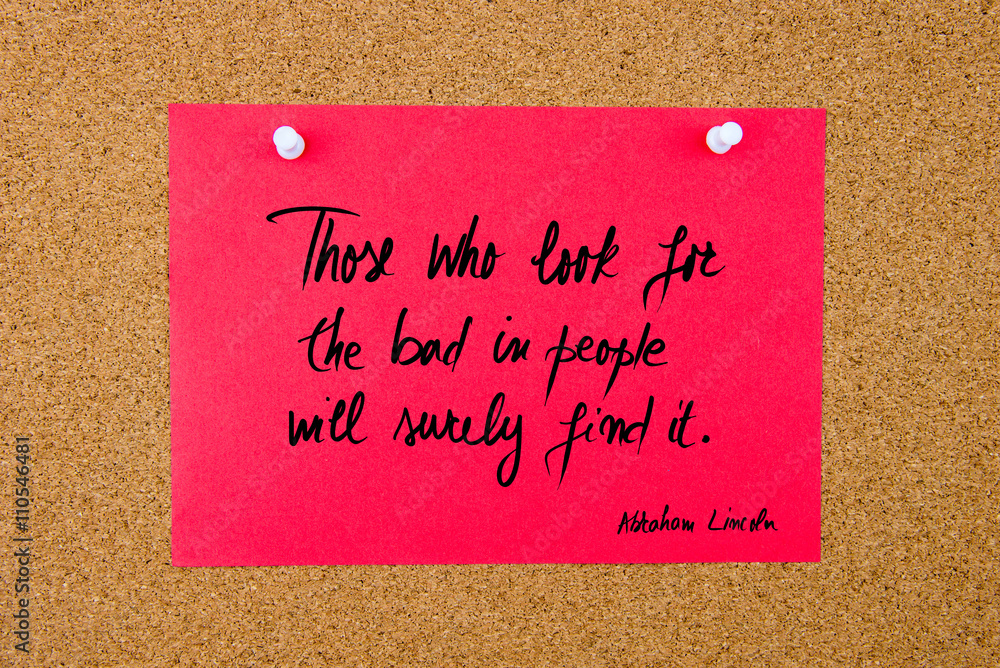 Those who look for
the bad in people
will surely find it.
Abraham Lincoln
Adobe Stock | #110546481